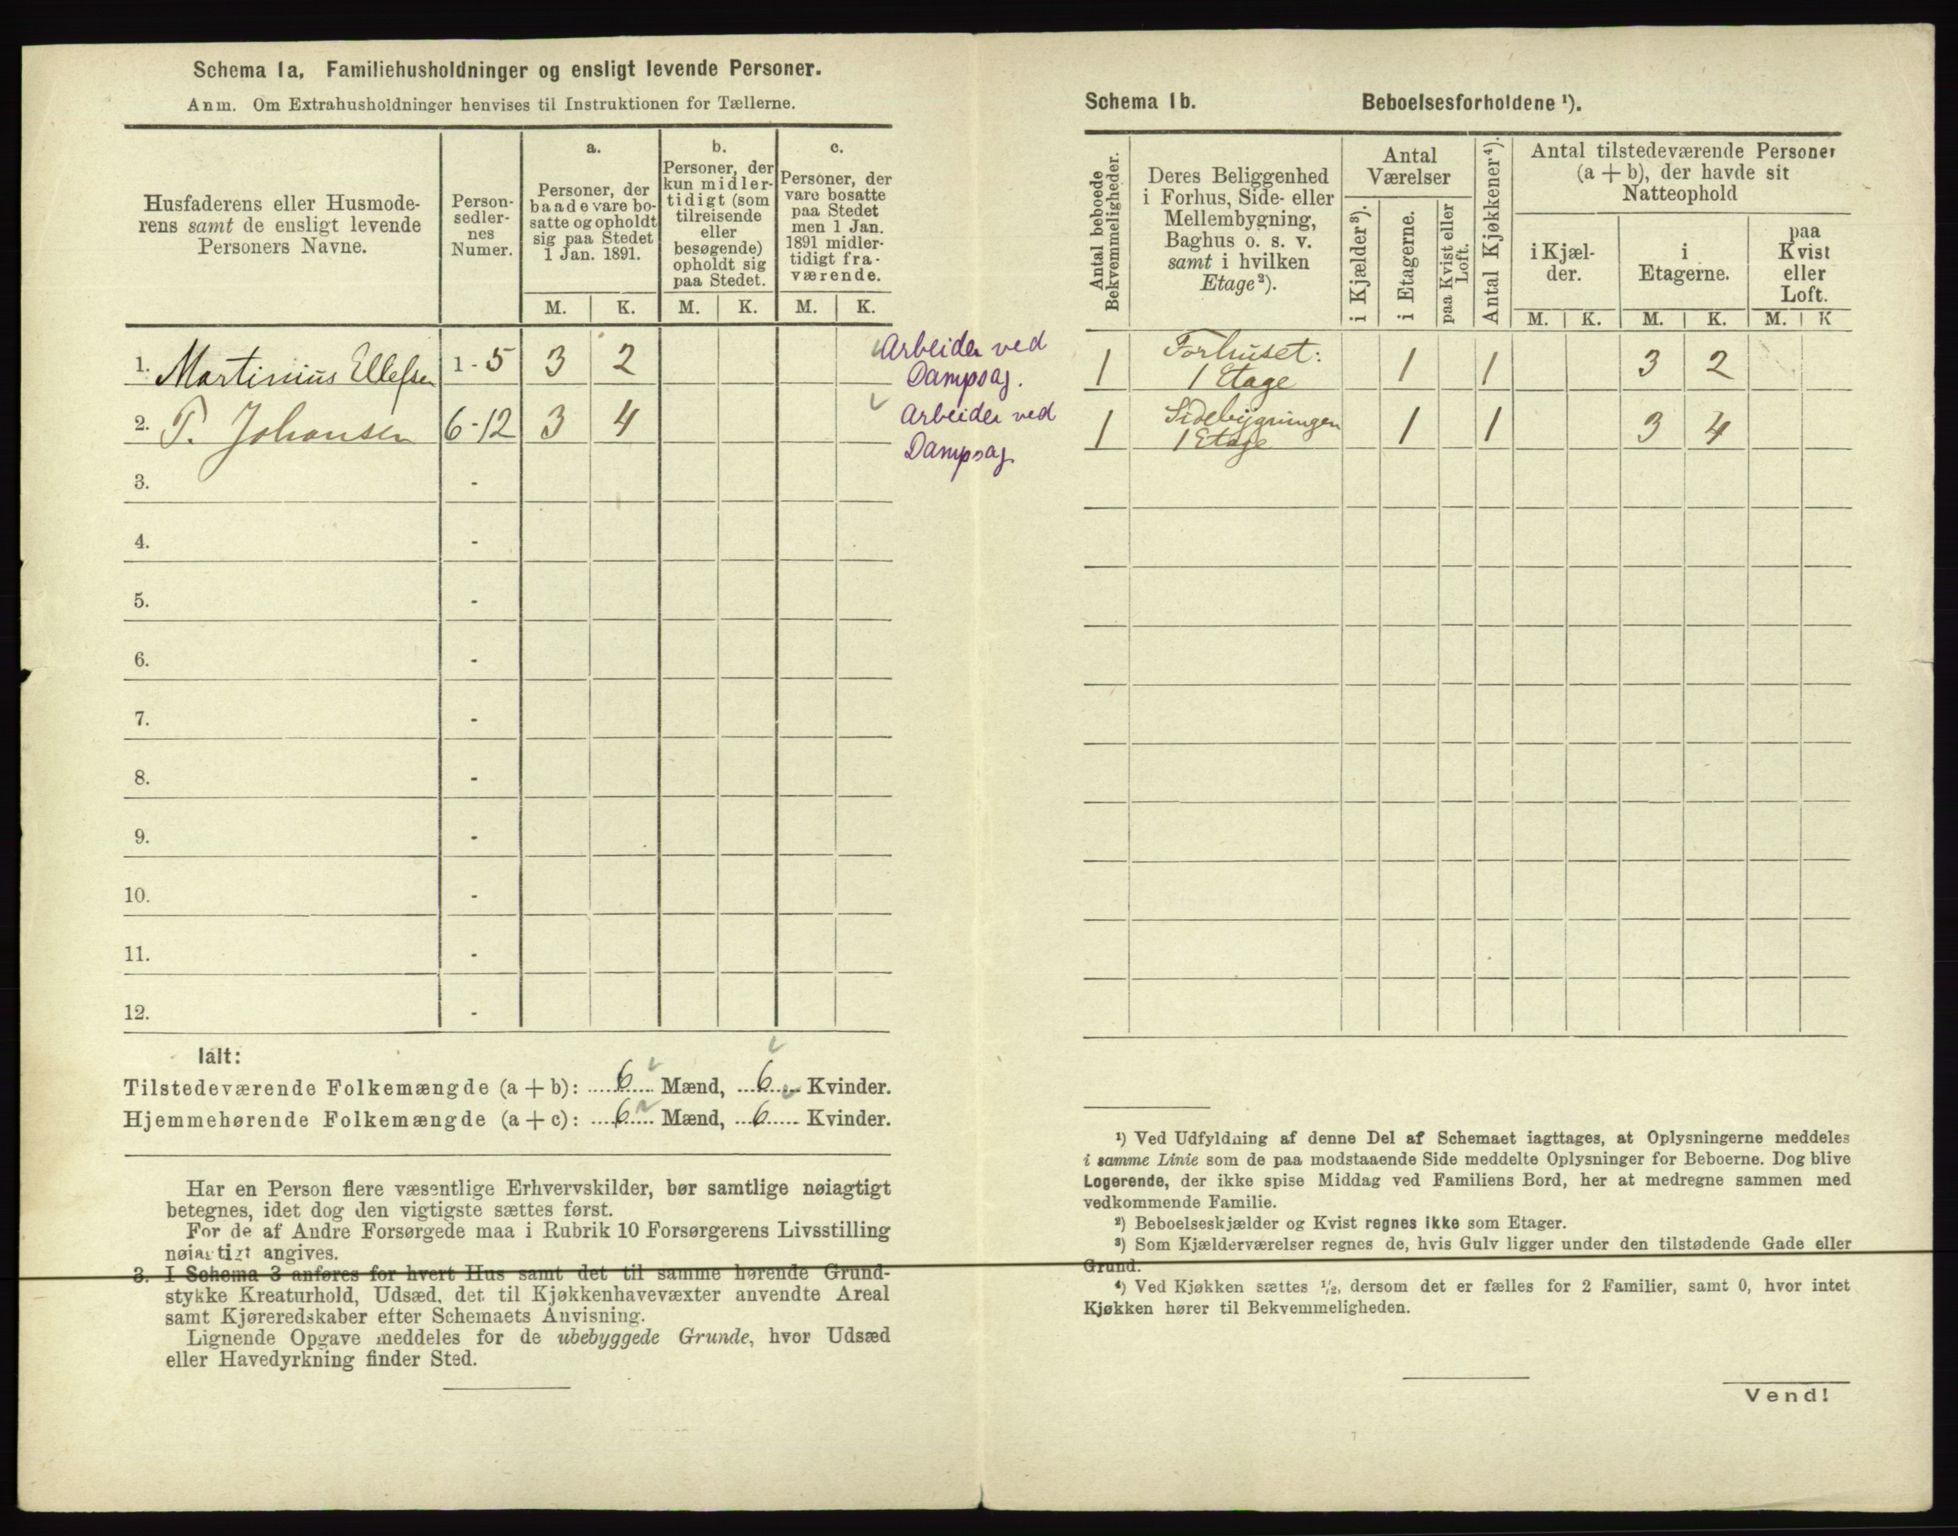 Schema 1a. Familiehusholdninger og ensligt levende Personer.
Anm. Om Extrahusholdninger henvises til Instruktionen for Tællerne.
Husfaderens eller Husmode-
rens samt de ensligt levende
Personers Navne.
Person-
sedler-
nes
Numer.
a.
Personer, der
baade vare bo-
satte og opholdt
sig paa Stedet
1 Jan. 1891.
b.
Personer, der
kun midler-
tidigt (som
tilreisende
eller
besøgende)
opholdt sig
paa Stedet.
c.
Personer, der
vare bosatte
paa Stedet
men 1 Jan.
1891 midler-
tidigt fra-
værende.
M. K. M. K. M. K.
1. Martinius Ellefsen 1-5 3 2 Arbeider ved
Dampsag.
2. T. Johansen 6-12 3 4 Arbeider ved
Dampsag
3. -
4. -
5. -
6. -
7. -
8. -
9. -
10. -
11. -
12. -
Ialt:
Tilstedeværende Folkemængde (a + b): 6 Mænd, 6 Kvinder.
Hjemmehørende Folkemængde (a + c): 6 Mænd, 6 Kvinder.
Har en Person flere væsentlige Erhvervskilder, bør samtlige nøiagtigt
betegnes, idet dog den vigtigste sættes først.
For de af Andre Forsørgede maa i Rubrik 10 Forsørgerens Livsstilling
nøiagtigt angives.
3. I Schema 3 anføres for hvert Hus samt det til samme hørende Grund-
stykke Kreaturhold, Udsæd, det til Kjøkkenhavevæxter anvendte Areal
samt Kjøreredskaber efter Schemaets Anvisning.
Lignende Opgave meddeles for de ubebyggede Grunde, hvor Udsæd
eller Havedyrkning finder Sted.
Schema 1b. Beboelsesforholdene ¹).
Antal beboede
Bekvemmeligheder.
Deres Beliggenhed
i Forhus, Side- eller
Mellembygning,
Baghus o. s. v.
samt i hvilken
Etage²).
Antal
Værelser
i Kjælder³).
i Etagerne.
paa Kvist eller
Loft.
Antal Kjøkkener⁴).
Antal tilstedeværende Personer
(a + b), der havde sit
Natteophold
i Kjæl-
der.
i
Etagerne.
paa
Kvist
eller
Loft.
M. K. M. K. M. K
1 Forhuset: 1 1 3 2
1 Etage
1 Sidebygningen 1 1 3 4
1 Etage
¹) Ved Udfyldning af denne Del af Schemaet iagttages, at Oplysningerne meddeles
i samme Linie som de paa modstaaende Side meddelte Oplysninger for Beboerne. Dog blive
Logerende, der ikke spise Middag ved Familiens Bord, her at medregne sammen med
vedkommende Familie.
²) Beboelseskjælder og Kvist regnes ikke som Etager.
³) Som Kjælderværelser regnes de, hvis Gulv ligger under den tilstødende Gade eller
Grund.
⁴) Ved Kjøkken sættes ½, dersom det er fælles for 2 Familier, samt 0, hvor intet
Kjøkken hører til Bekvemmeligheden.
Vend!